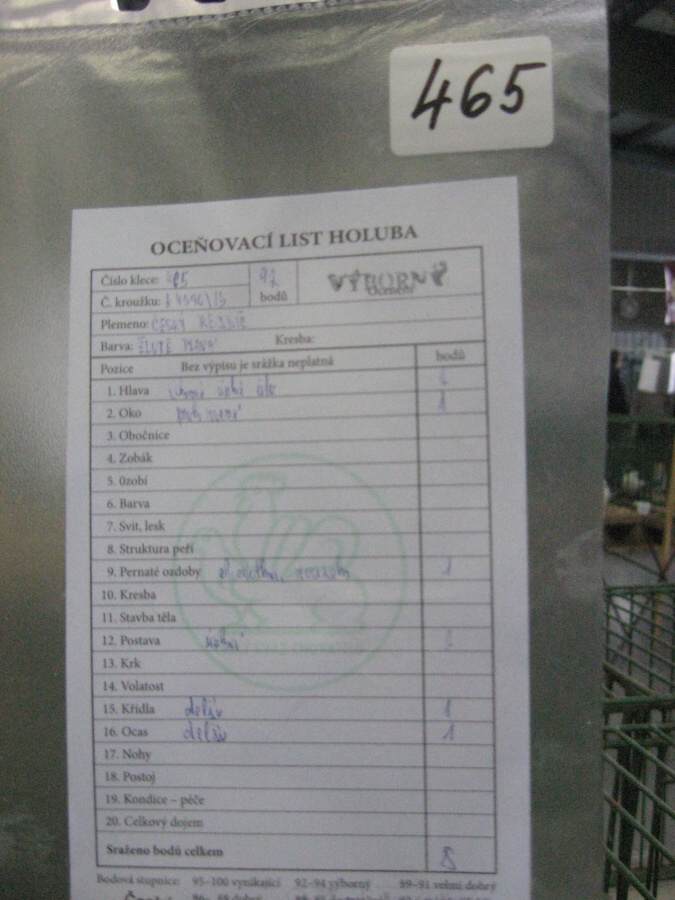 465
OCEŇOVACÍ LIST HOLUBA
Číslo klece: 465
92
bodů
VÝBORNÝ
Ocenění
Č. kroužku:
Plemeno: ČESKÝ
Barva:
Kresba:
Pozice Bez výpisu je srážka neplatná bodů
1. Hlava
2. Oko 1
3. Obočnice
4. Zobák
5. Ozobí
6. Barva
7. Svit, lesk
8. Struktura peří
9. Pernaté ozdoby 1
10. Kresba
11. Stavba těla
12. Postava
13. Krk
14. Volatost
15. Křídla delší 1
16. Ocas delší 1
17. Nohy
18. Postoj
19. Kondice – péče
20. Celkový dojem
Sraženo bodů celkem 8
Bodová stupnice: 95–100 vynikající 92–94 výborný 89–91 velmi dobrý